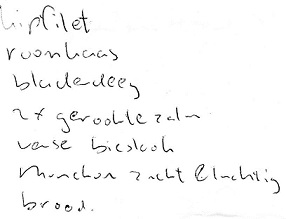 kipfilet
roomkaas
bladerdeeg
2x gerookte zalm
verse bieslook
zacht & luchtig
brood.